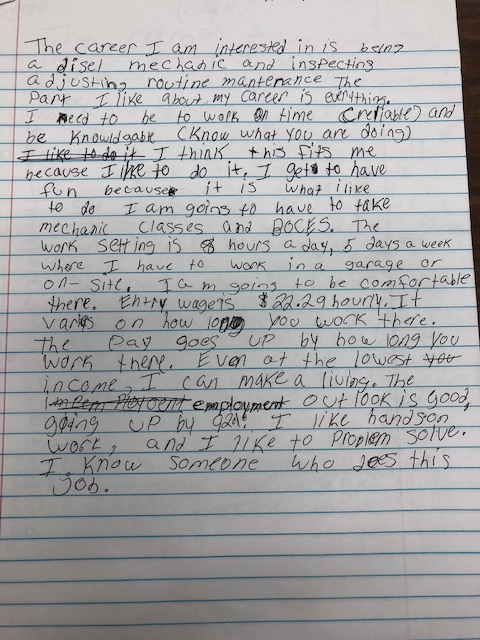 The career I am interested in is being
a disel mechanic and inspecting
adjusting routine mantenance The
Part I like about my career is everything.
I need to be to work on time (reliable) and
be knowldgable (know what you are doing)
I like to do it I think this fits me
because I like to do it. I got to have
fun because it is what i like
to do I am going to have to take
mechanic classes and BOCES. The
work setting is 8 hours a day, 5 days a week
where I have to work in a garage or
on-site. I am going to be comfortable
there. Entry wagers $22.29 hourly. It
varies on how long you work there.
The Pay goes up by how long you
work there. Even at the lowest you
income, I can make a living. The
employment out look is good,
going up by I like handson
work, and I like to Problem solve.
I know someone who does this
job.